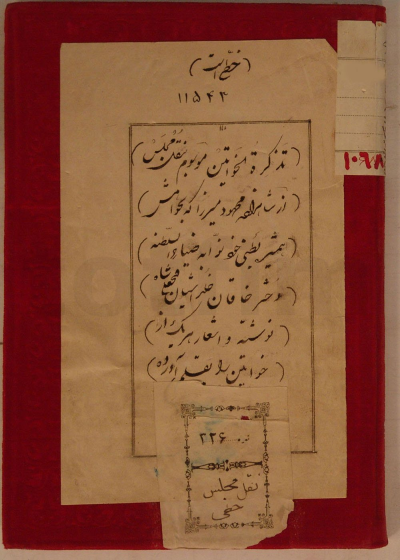 (خطی است)
۱۱۵۴۳
(تذکرة الخواتین موسوم بنقل مجلس)
(از شاهزاده محمود میرزا که بخواهش)
(همشیره بطنی خود نوابه ضیاء السلطنه)
(دختر خاقان خلد آشیان فتحعلیشاه)
(نوشته و اشعار هر یک از)
(خواتین را بقلم آورده)
نمره ۲۲۶
نقل مجلس
خطی
۱۰۶۸